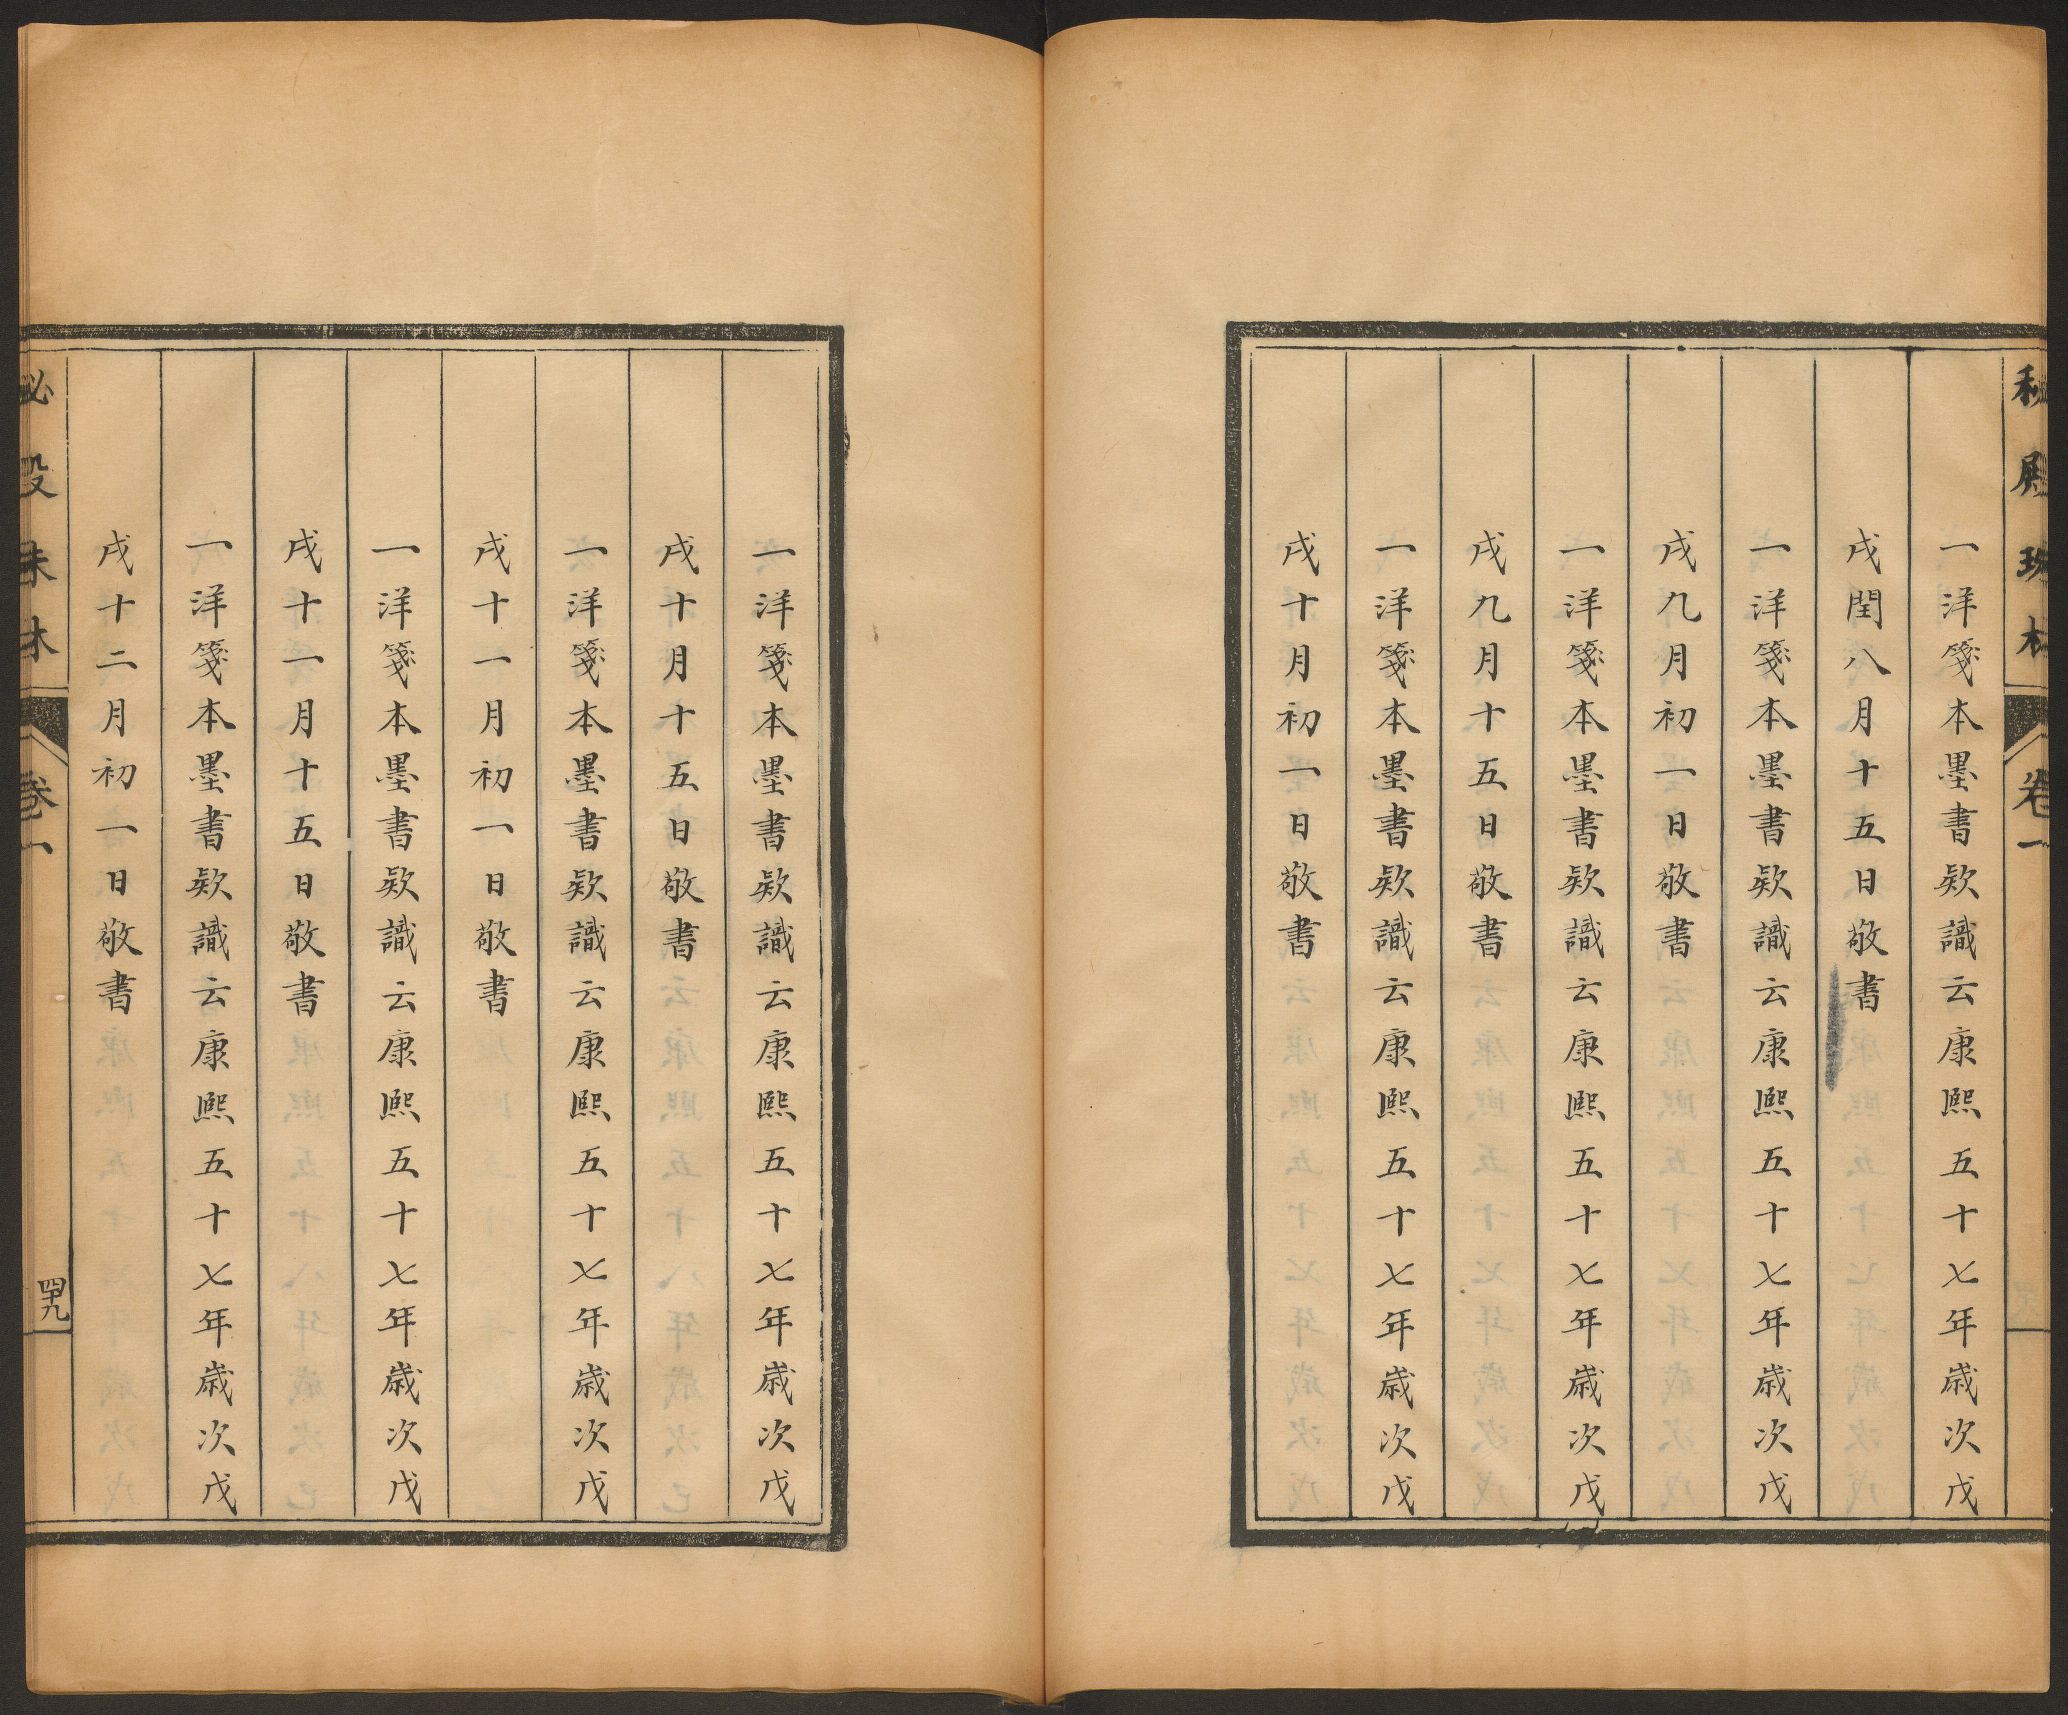 秘殿珠林 卷一
一洋箋本墨書欵識云康熙五十七年歲次戊
戌閏八月十五日敬書
一洋箋本墨書欵識云康熙五十七年歲次戊
戌九月初一日敬書
一洋箋本墨書欵識云康熙五十七年歲次戊
戌九月十五日敬書
一洋箋本墨書欵識云康熙五十七年歲次戊
戌十月初一日敬書
一洋箋本墨書欵識云康熙五十七年歲次戊
戌十月十五日敬書
一洋箋本墨書欵識云康熙五十七年歲次戊
戌十一月初一日敬書
一洋箋本墨書欵識云康熙五十七年歲次戊
戌十一月十五日敬書
一洋箋本墨書欵識云康熙五十七年歲次戊
戌十二月初一日敬書
秘殿珠林 卷一 四十九